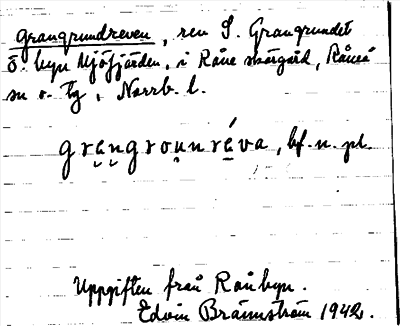 Grangrundreven, rev S. Grangrundet
ö. byn Mjöfjärden, i Råne skärgård, Råneå
sn o. tg, Norrb. l.
grɛngrounréva, bf. n. pl.
Uppgiften från Rånbyn.
Edvin Brännström 1942.